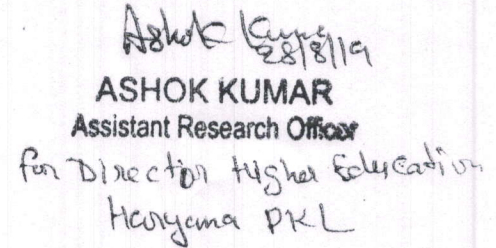 Ashok Kumar
28/8/19
ASHOK KUMAR
Assistant Research Officer
for Director Higher Education
Haryana PKL